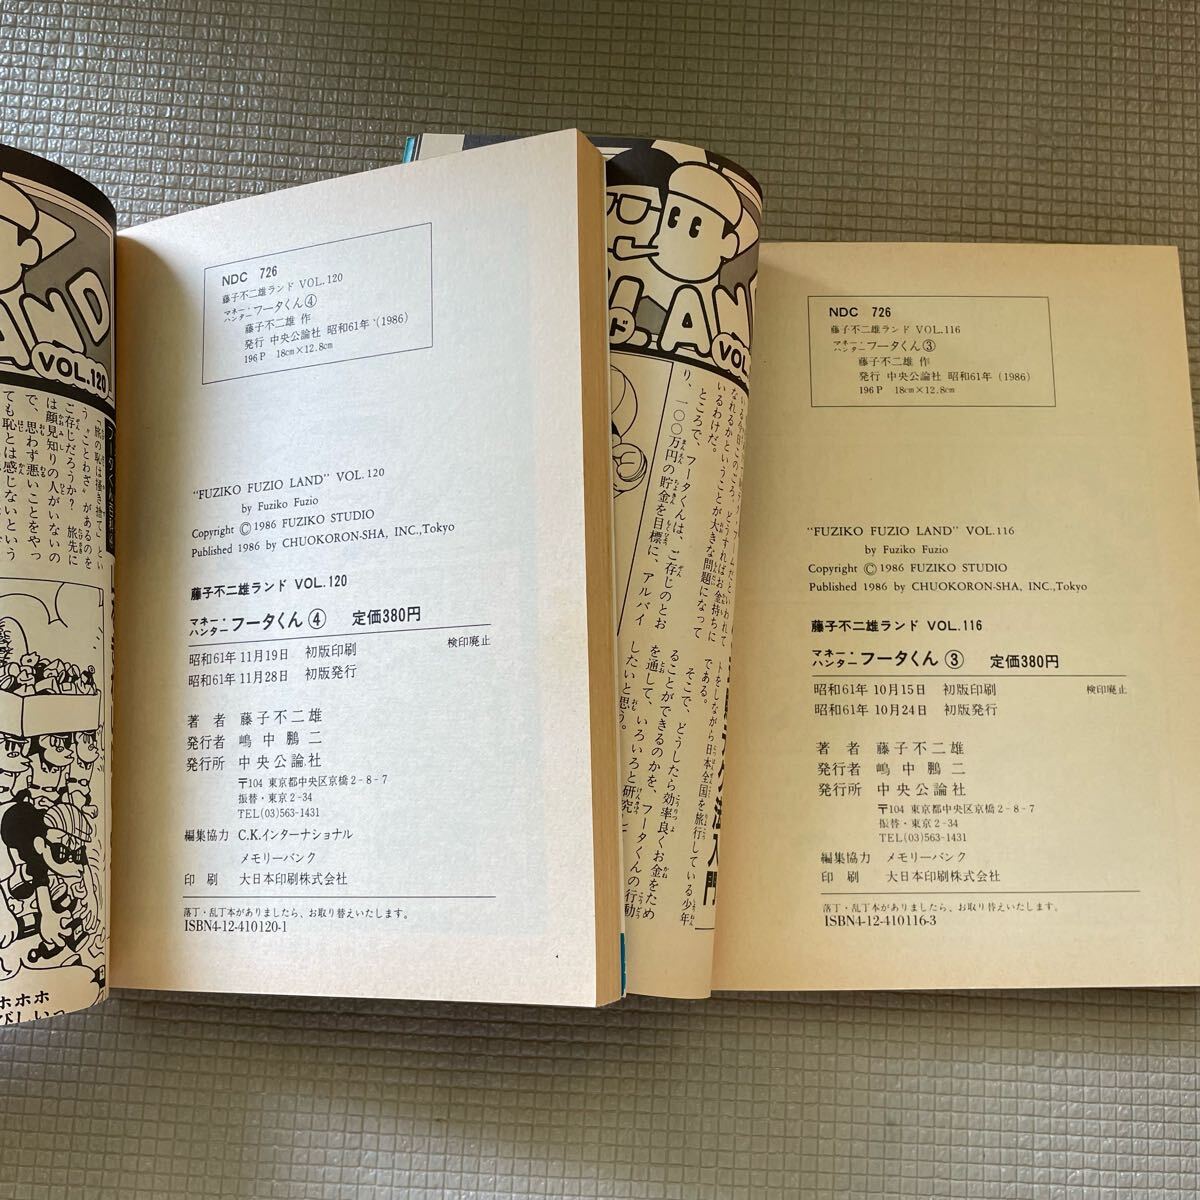 AND
VOL.120
「旅の恥は掻き捨て」とい
う"ことわざ"があるのを
ご存じだろうか? 旅先に
は顔見知りの人がいないの
で、思わず悪いことをやっ
ても恥とは感じないという
ホホホ
NDC 726
藤子不二雄ランド VOL.120
マネー・ハンター フータくん④
藤子不二雄 作
発行 中央公論社 昭和61年(1986)
196P 18cm×12.8cm
"FUZIKO FUZIO LAND" VOL.120
by Fuziko Fuzio
Copyright © 1986 FUZIKO STUDIO
Published 1986 by CHUOKORON-SHA, INC.,Tokyo
藤子不二雄ランド VOL.120
マネー・ハンター フータくん ④ 定価380円
昭和61年11月19日 初版印刷 検印廃止
昭和61年11月28日 初版発行
著者 藤子不二雄
発行者 嶋中鵬二
発行所 中央公論社
〒104 東京都中央区京橋2-8-7
振替・東京2-34
TEL(03)563-1431
編集協力 C.K.インターナショナル
メモリーバンク
印刷 大日本印刷株式会社
落丁・乱丁本がありましたら、お取り替えいたします。
ISBN4-12-410120-1
VOL.
なれるかということが大きな問題になって
いるわけだ。
ところで、フータくんは、ご存じのとお
り、一〇〇万円の貯金を目標に、アルバイ
トをしながら日本全国を旅行している少年
である。
そこで、どうしたら効率良くお金をため
ることができるのかを、フータくんの行動
を通して、いろいろと研究し
したいと思う。
NDC 726
藤子不二雄ランド VOL.116
マネー・ハンター フータくん③
藤子不二雄 作
発行 中央公論社 昭和61年(1986)
196P 18cm×12.8cm
"FUZIKO FUZIO LAND" VOL.116
by Fuziko Fuzio
Copyright © 1986 FUZIKO STUDIO
Published 1986 by CHUOKORON-SHA, INC.,Tokyo
藤子不二雄ランド VOL.116
マネー・ハンター フータくん ③ 定価380円
昭和61年10月15日 初版印刷 検印廃止
昭和61年10月24日 初版発行
著者 藤子不二雄
発行者 嶋中鵬二
発行所 中央公論社
〒104 東京都中央区京橋2-8-7
振替・東京2-34
TEL(03)563-1431
編集協力 メモリーバンク
印刷 大日本印刷株式会社
落丁・乱丁本がありましたら、お取り替えいたします。
ISBN4-12-410116-3